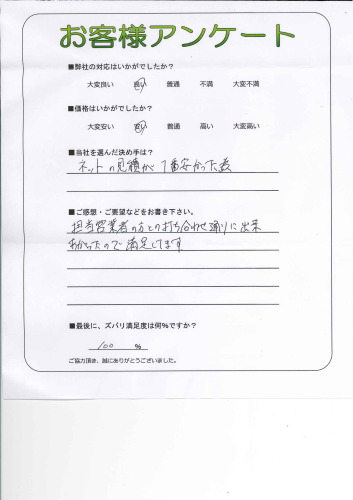 お客様アンケート
■弊社の対応はいかがでしたか？
大変良い 良い 普通 不満 大変不満
■価格はいかがでしたか？
大変安い 安い 普通 高い 大変高い
■当社を選んだ決め手は？
ネットの見積が1番安かった為
■ご感想・ご要望などをお書き下さい。
担当営業者の方との打ち合わせ通りに出来
ので満足してます
■最後に、ズバリ満足度は何%ですか？
100 %
ご協力頂き、誠にありがとうございました。